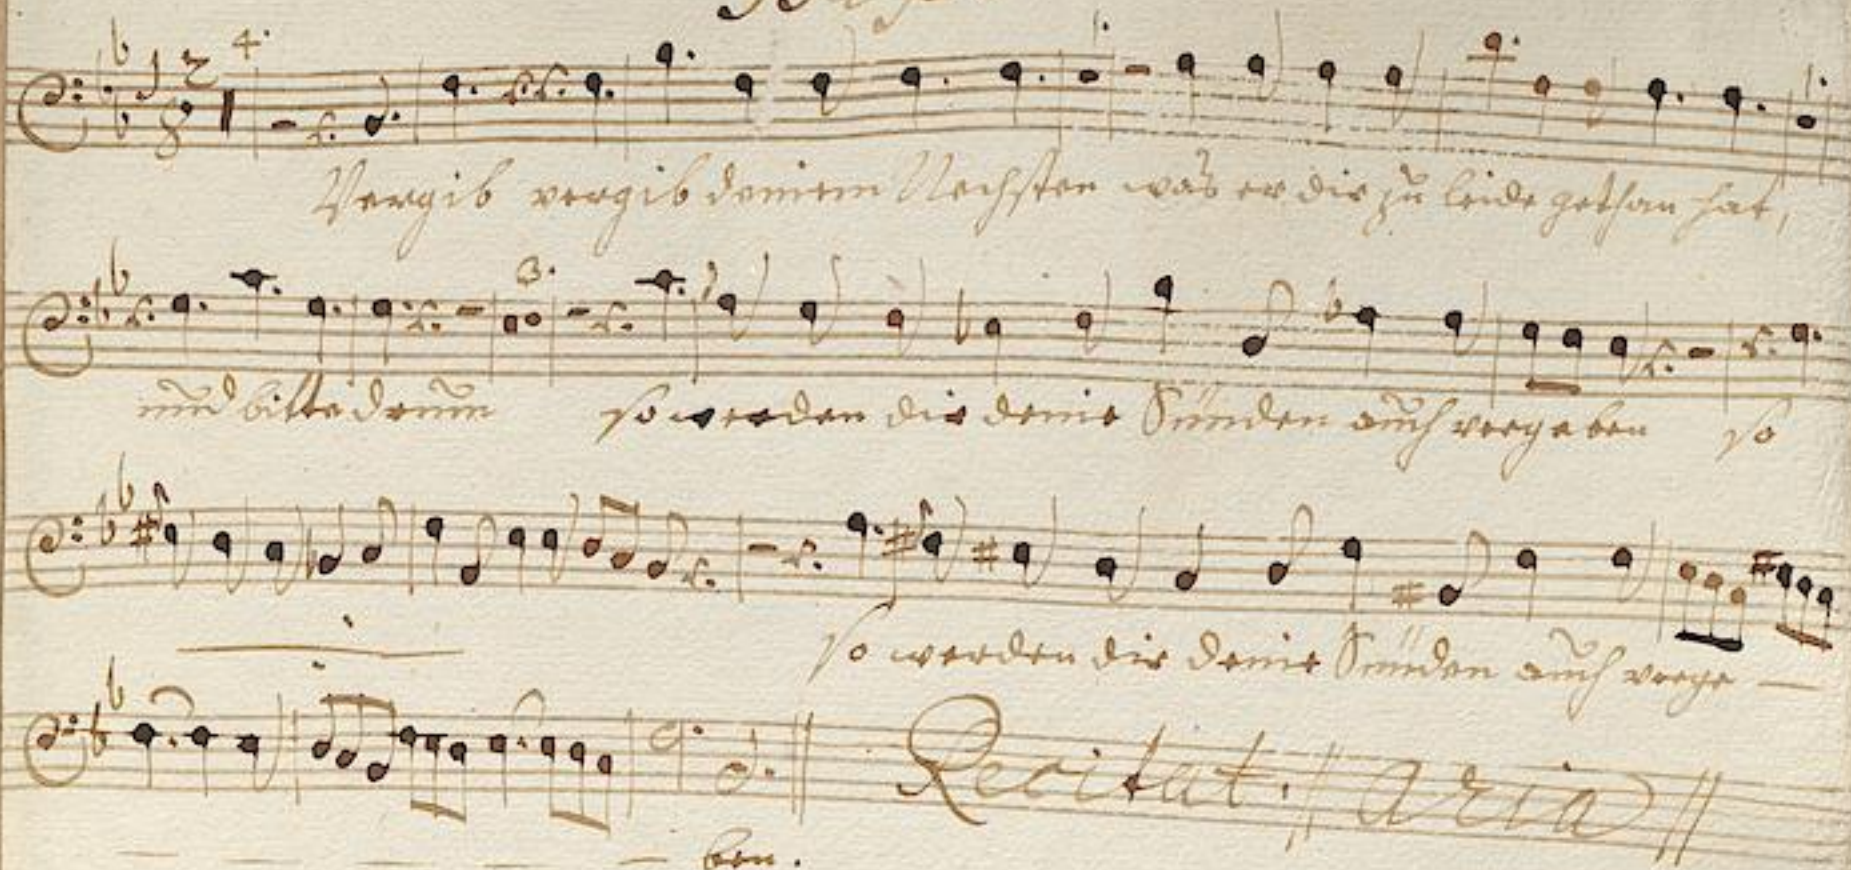 4.
Vergib vergib deinem Nechsten was er dir zu leide gethan hat,
3.
und bitte drum so werden dir deine Sünden auch vergeben so
so werden dir deine Sünden auch verge
Recitat: Aria
ben.